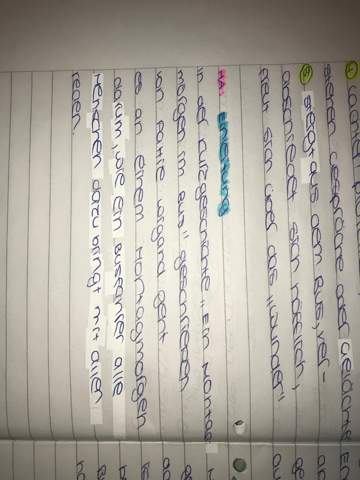 stehen Gespräche der Gelächte
steigt aus dem Bus, ver-
abschiedet sich höflich,
freut sich über das "Wunder"
HA: Einleitung
In der Kurzgeschichte "Ein Montag-
morgen im Bus" geschrieben
von Katrin Wiegand geht
es an einem Montagmorgen
darum, wie ein Busfahrer alle
Menschen dazu bringt mit allen
reden.